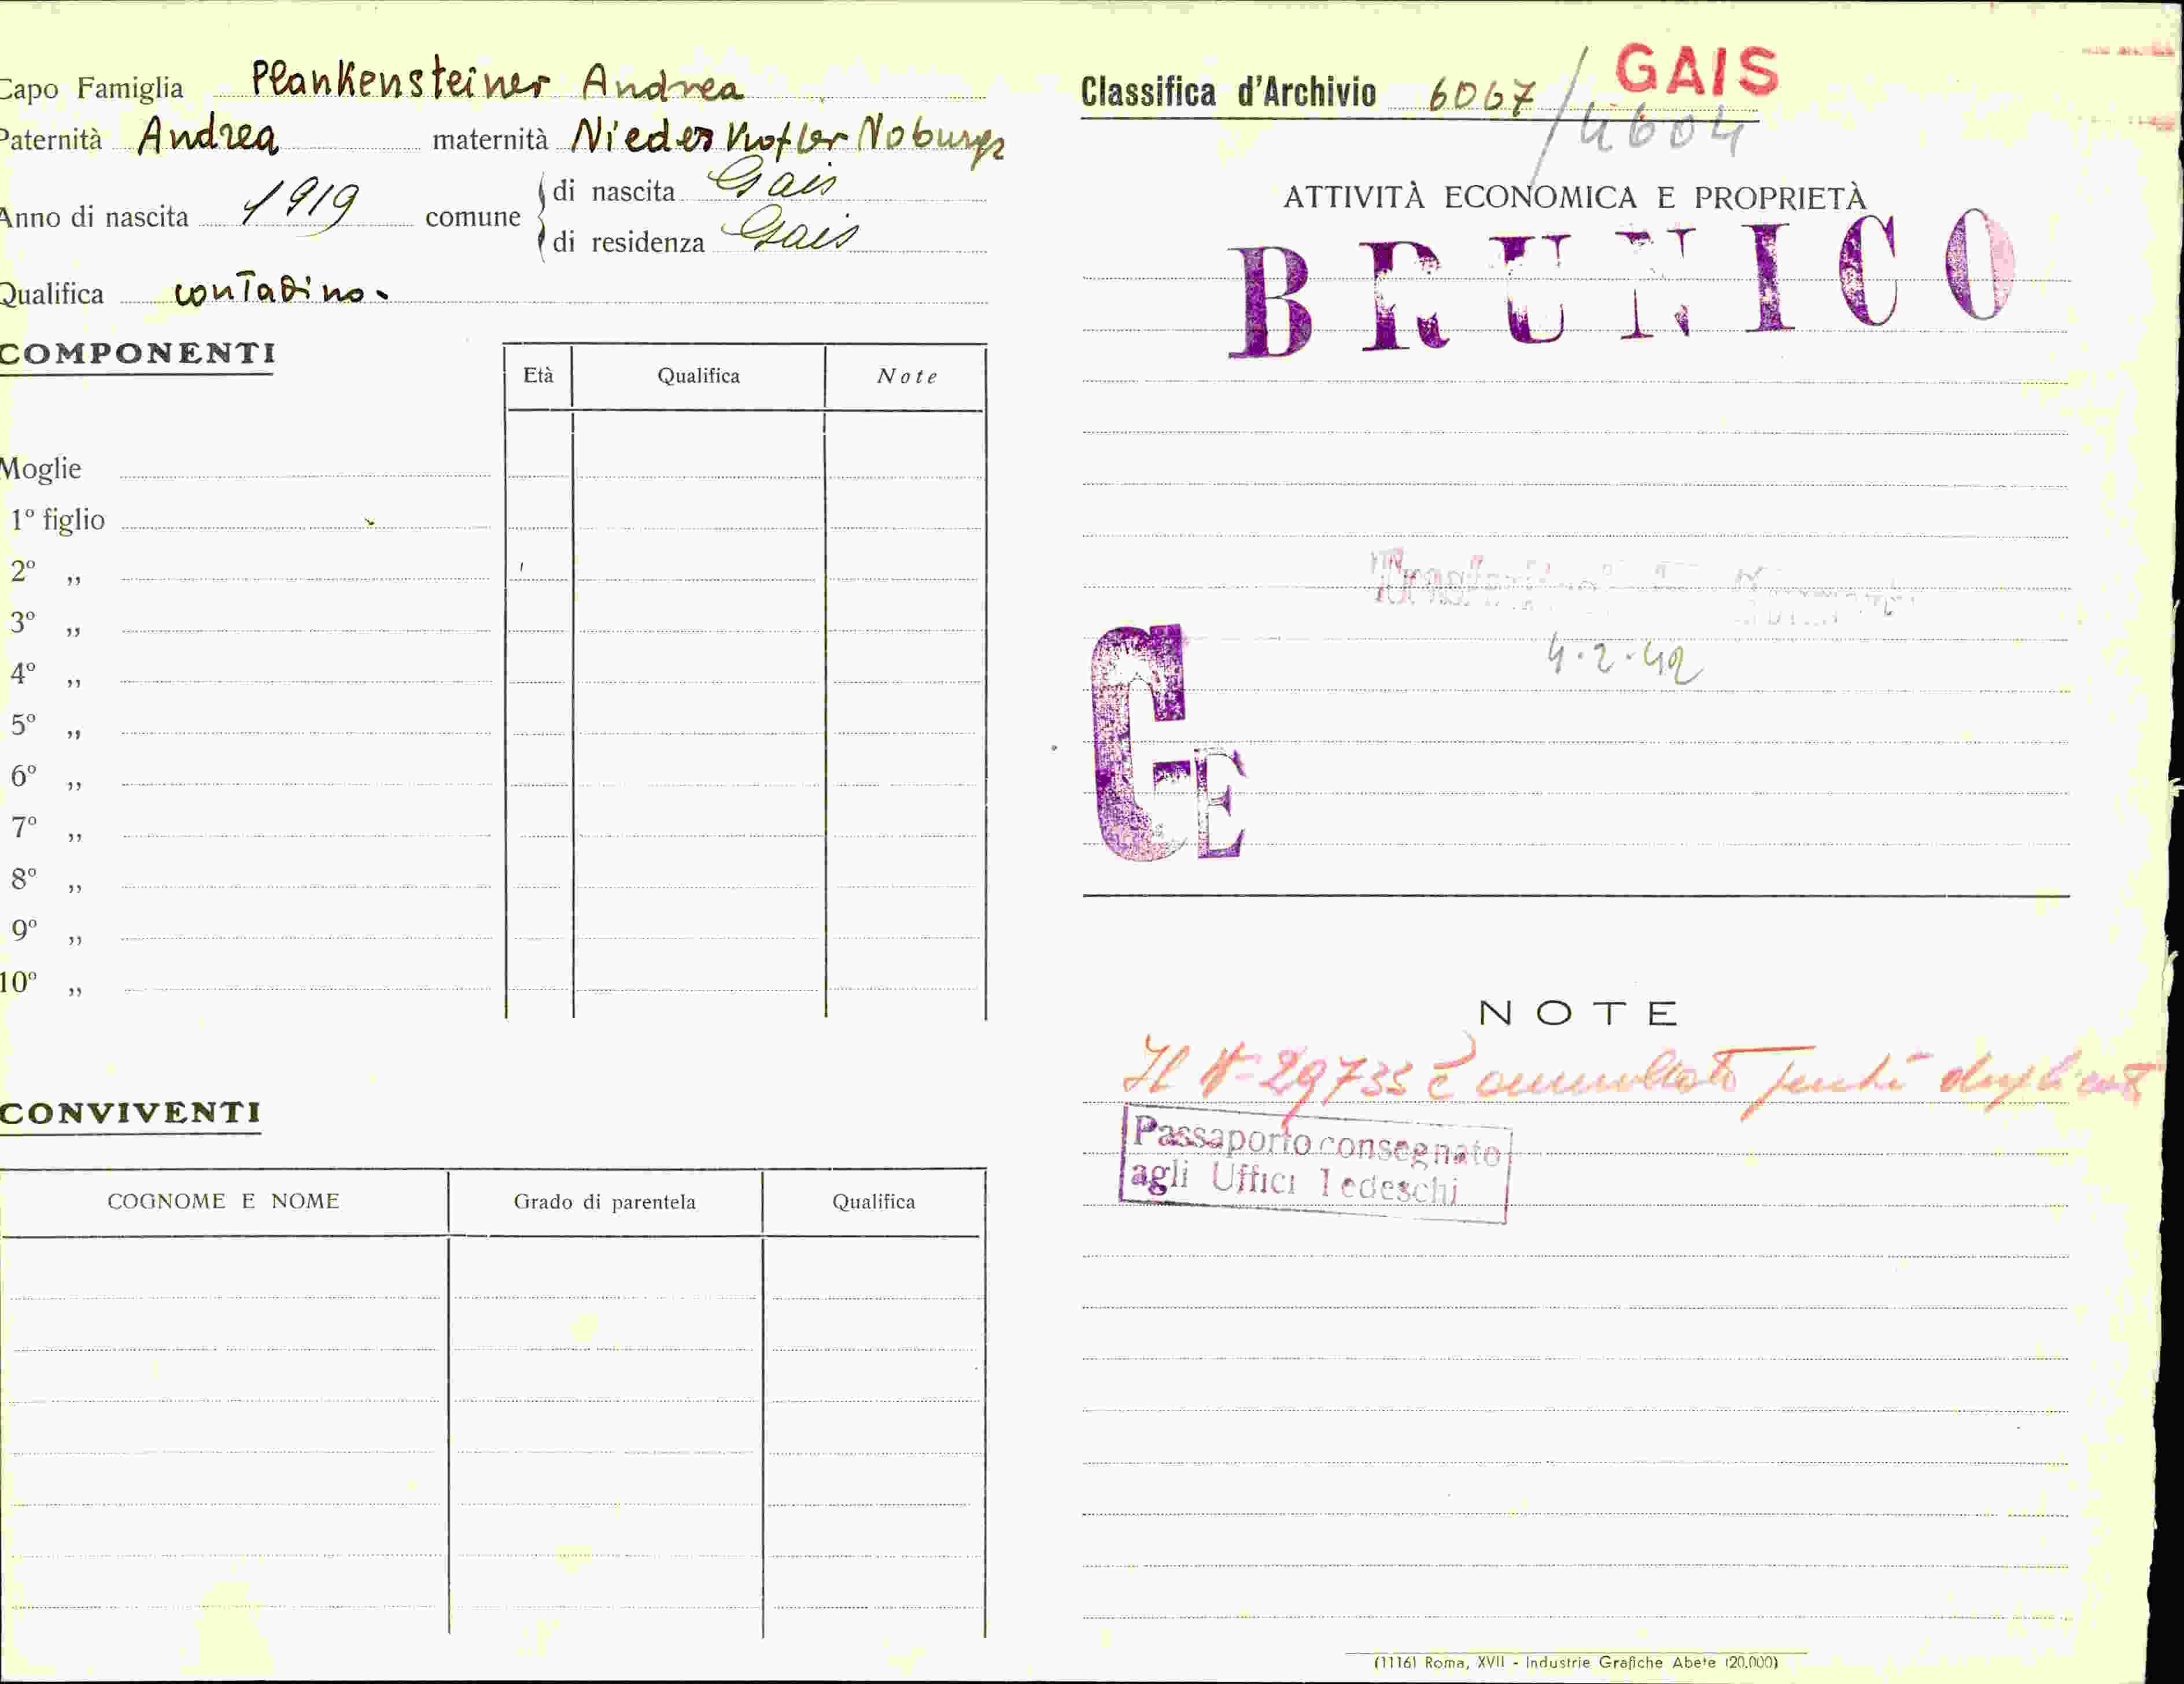 Capo Famiglia Plankensteiner Andrea
Paternità Andrea maternità Niederkofler Noburga
Anno di nascita 1919 comune di nascita Gais
di residenza Gais
Qualifica contadino.
COMPONENTI
Età Qualifica Note
Moglie
1º figlio
2º „
3º „
4º „
5º „
6º „
7º „
8º „
9º „
10º „
CONVIVENTI
COGNOME E NOME Grado di parentela Qualifica
Classifica d'Archivio 6067 / 4604
GAIS
ATTIVITÀ ECONOMICA E PROPRIETÀ
BRUNICO
4.2.42
GE
NOTE
Il Nº 29735 è annullato perché duplicato
Passaporto consegnato
agli Uffici Tedeschi
(1116) Roma, XVII - Industrie Grafiche Abete (20.000)